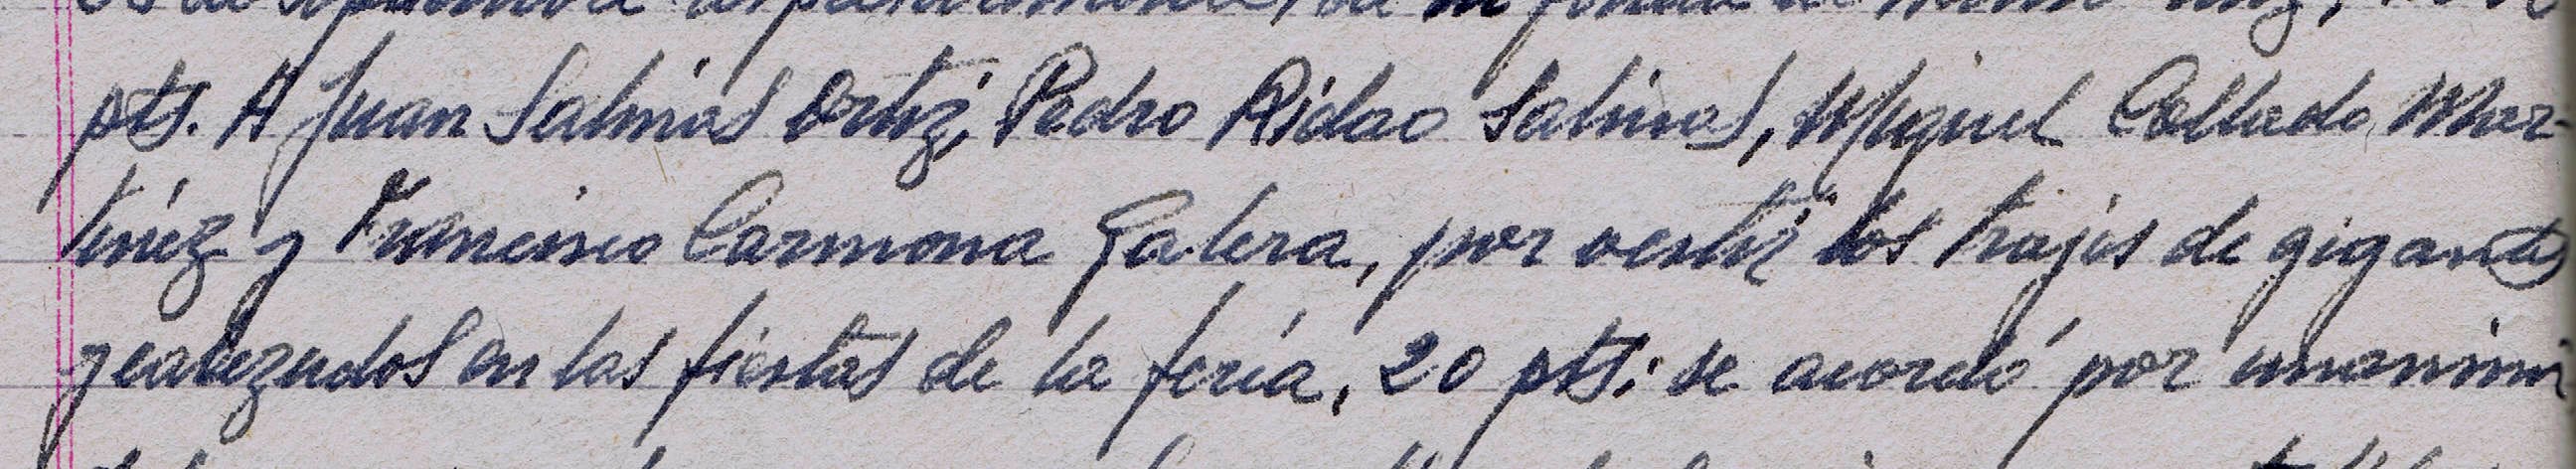 pts. A Juan Salinas Ortiz, Pedro Ridao Salinas, Miguel Collado Mar-
tinez y Francisco Carmona Galera, por vestir los trajes de gigantes
y cabezudos en las fiestas de la feria, 20 pts; se acordó por unanimi